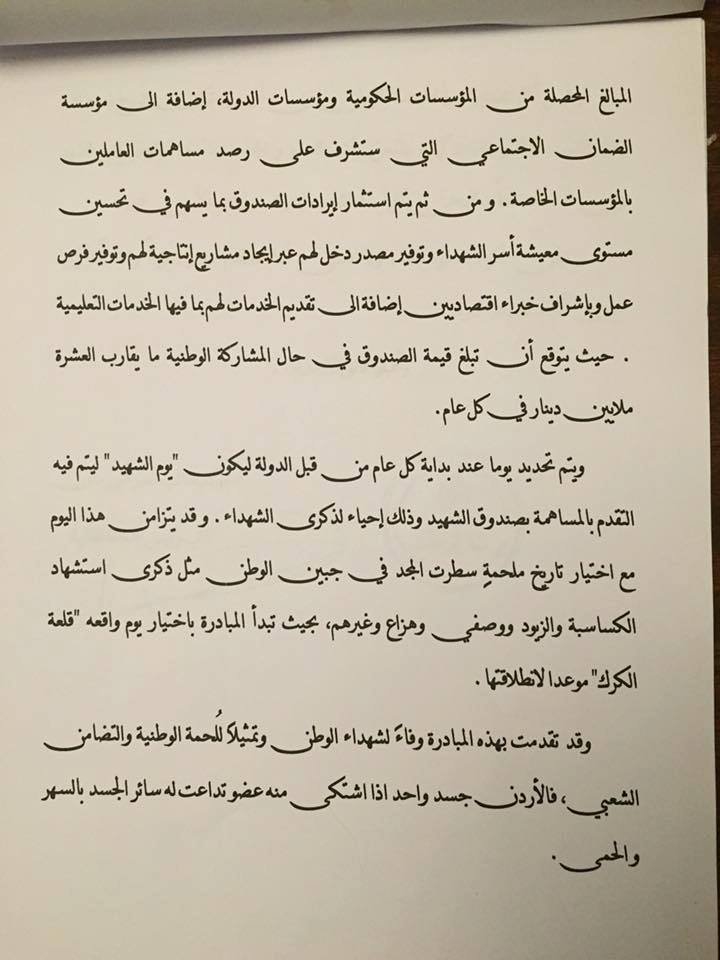 المبالغ المحصلة من المؤسسات الحكومية ومؤسسات الدولة، إضافة الى مؤسسة
الضمان الاجتماعي التي ستشرف على رصد مساهمات العاملين
بالمؤسسات الخاصة . ومن ثم يتم استثمار إيرادات الصندوق بما يسهم في تحسين
مستوى معيشة أسر الشهداء وتوفير مصدر دخل لهم عبر إيجاد مشاريع إنتاجية لهم وتوفير فرص
عمل وبإشراف خبراء اقتصاديين إضافة الى تقديم الخدمات لهم بما فيها الخدمات التعليمية
. حيث يتوقع أن تبلغ قيمة الصندوق في حال المشاركة الوطنية ما يقارب العشرة
ملايين دينار في كل عام.
ويتم تحديد يوما عند بداية كل عام من قبل الدولة ليكون "يوم الشهيد" ليتم فيه
التقدم بالمساهمة بصندوق الشهيد وذلك إحياء لذكرى الشهداء . وقد يتزامن هذا اليوم
مع اختيار تاريخ ملحمةٍ سطرت المجد في جبين الوطن مثل ذكرى استشهاد
الكساسبة والزيود ووصفي وهزاع وغيرهم، بحيث تبدأ المبادرة باختيار يوم واقعه "قلعة
الكرك" موعدا لانطلاقتها .
وقد تقدمت بهذه المبادرة وفاءً لشهداء الوطن وتمثيلاً للُحمة الوطنية والتضامن
الشعبي، فالأردن جسد واحد اذا اشتكى منه عضو تداعت له سائر الجسد بالسهر
والحمى .